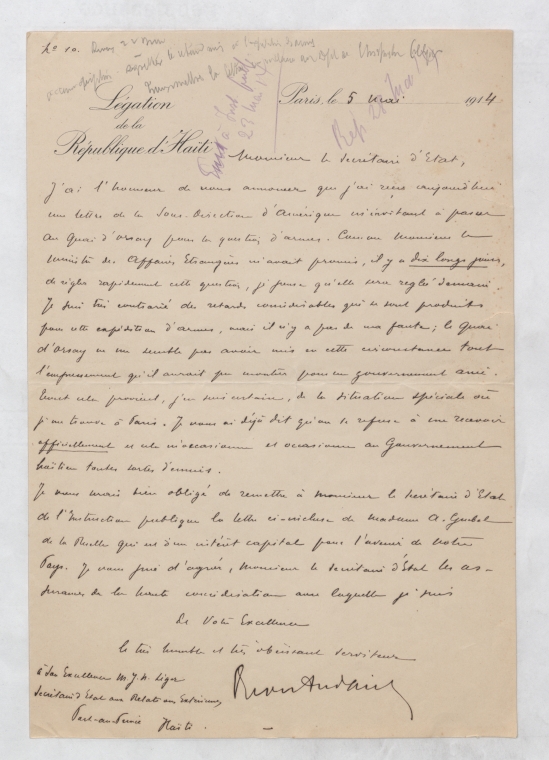 No 10.
Reçu 22 Mai
Transmettre la lettre
Légation
de la
République d'Haïti
Paris, le 5 mai 1914
23 mai 14
Rép 28 Mai
Monsieur le Secrétaire d'Etat,
J'ai l'honneur de vous annoncer que j'ai reçu aujourd'hui
une lettre de la Sous-Direction d'Amérique m'invitant à passer
au Quai d'Orsay pour la question d'armes. Comme Monsieur le
Ministre des Affaires Etrangères m'avait promis, il y a dix longs jours,
de régler rapidement cette question, je pense qu'elle sera reglée demain.
Je suis très contrarié des retards considérables qui se sont produits
pour cette expédition d'armes, mais il n'y a pas de ma faute ; le Quai
d'Orsay ne me semble pas avoir mis en cette circonstance tout
l'empressement qu'il aurait pu montrer pour un gouvernement ami.
Tout cela provient, j'en suis certain, de la situation spéciale où
je me trouve à Paris. Je vous ai déjà dit qu'on se refuse à me recevoir
officiellement et cela m'occasionne et occasionne au Gouvernement
haïtien toutes sortes d'ennuis.
Je vous serais bien obligé de remettre à Monsieur le Secrétaire d'Etat
de l'Instruction publique la lettre ci-incluse de Madame A.
de la Ruelle qui est d'un intérêt capital pour l'avenir de notre
Pays. Je vous prie d'agréer, Monsieur le Secrétaire d'Etat les as-
surances de la haute considération avec laquelle je suis
De Votre Excellence
le très humble et très obéissant serviteur
à Son Excellence M. J. N. Léger
Secrétaire d'Etat aux Relations Extérieures
Port-au-Prince Haïti.